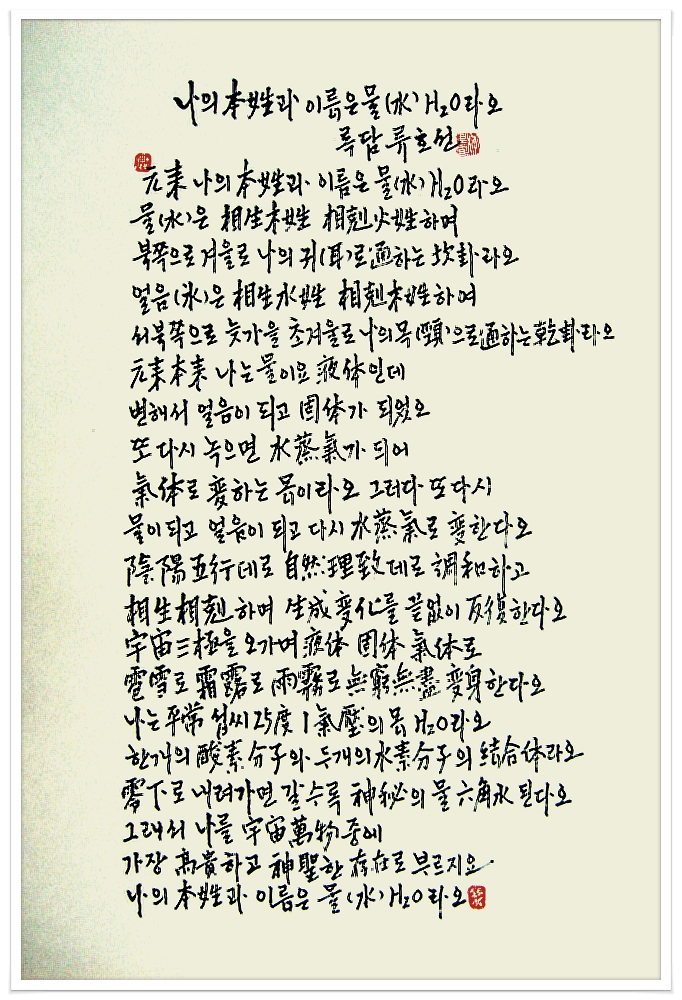 나의 本姓과 이름은 물(水) H₂O라오
류담 류호선
元素 나의 本姓과 이름은 물(水) H₂O라오
물(水)은 相生木姓 相剋火姓하며
북쪽으로 겨울로 나의 귀(耳)로 通하는 坎卦라오
얼음(氷)은 相生水姓 相剋木姓하여
서북쪽으로 늦가을 초겨울로 나의 목(頸)으로 通하는 乾卦라오
元素本素 나는 물이요 液体인데
변해서 얼음이 되고 固体가 되었오
또 다시 녹으면 水蒸氣가 되어
氣体로 変하는 몸이라오 그러다 또다시
물이 되고 얼음이 되고 다시 水蒸氣로 変한다오
陰陽五行데로 自然理致데로 調和하고
相生相剋하며 生成変化를 끝없이 反復한다오
宇宙三極을 오가며 液体 固体 氣体로
雹雪로 霜露로 雨霧로 無窮無盡 変身한다오
나는 平常 섭씨 25度 1氣壓의 몸 H₂O라오
한개의 酸素分子와 두개의 水素分子의 結合体라오
零下로 내려가면 갈수록 神秘의 물 六角水 된다오
그래서 나를 宇宙萬物중에
가장 高貴하고 神聖한 存在로 부르지요
나의 本姓과 이름은 물(水) H₂O라오